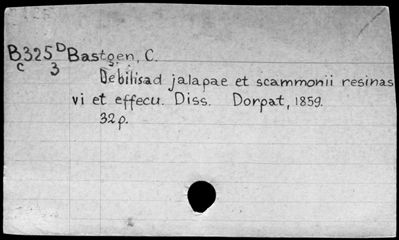 B325 D Bastgen, C.
c 3
Debilisad jalapae et scammonii resinas
vi et effecu. Diss. Dorpat, 1859.
32p.